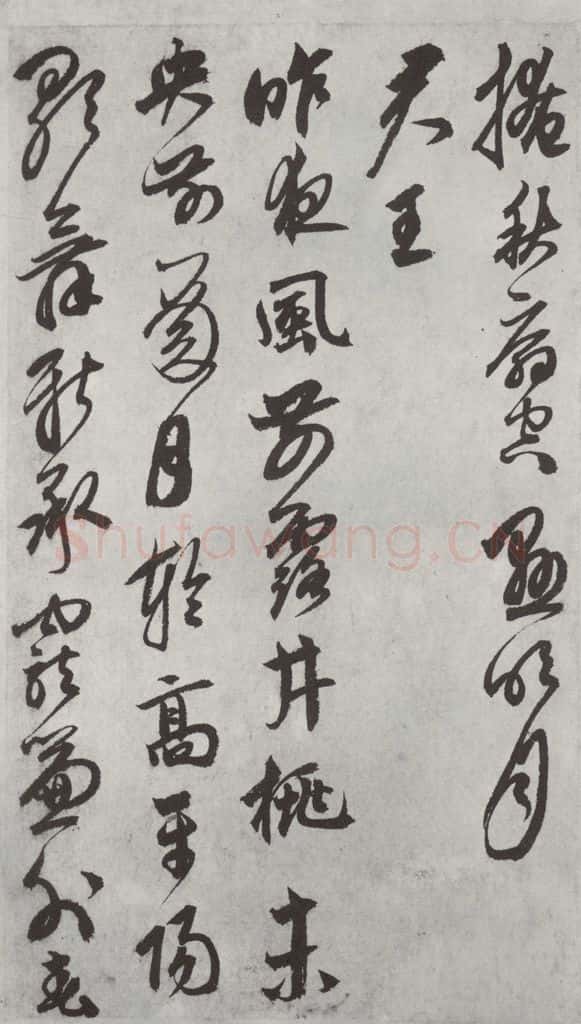 掩秋扇空懸明月
君王
昨夜風開露井桃未
央前殿月輪高平陽
歌舞新承寵簾外春
Shufawang.CN